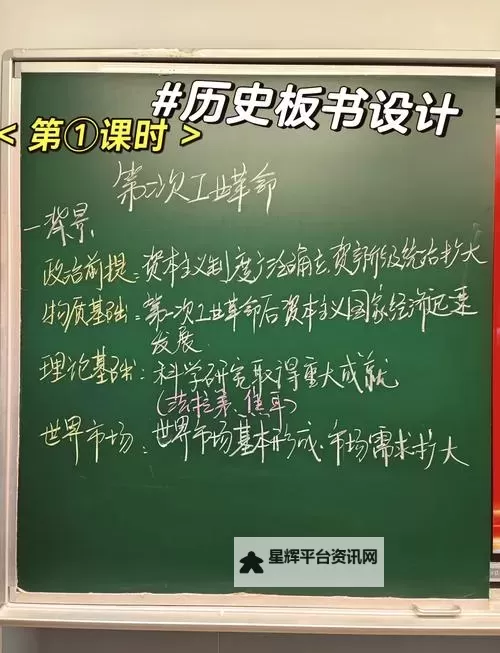 #历史板书设计
< 第①课时 >
第二次工业革命
一背景
政治前提:资本主义制度广泛确立,资产阶级统治扩大
物质基础:第一次工业革命后资本主义国家经济迅速
发展
理论基础:科学研究取得重大成就
(法拉第、焦耳)
世界市场:世界市场基本形成,市场需求扩大
星辉平台资讯网